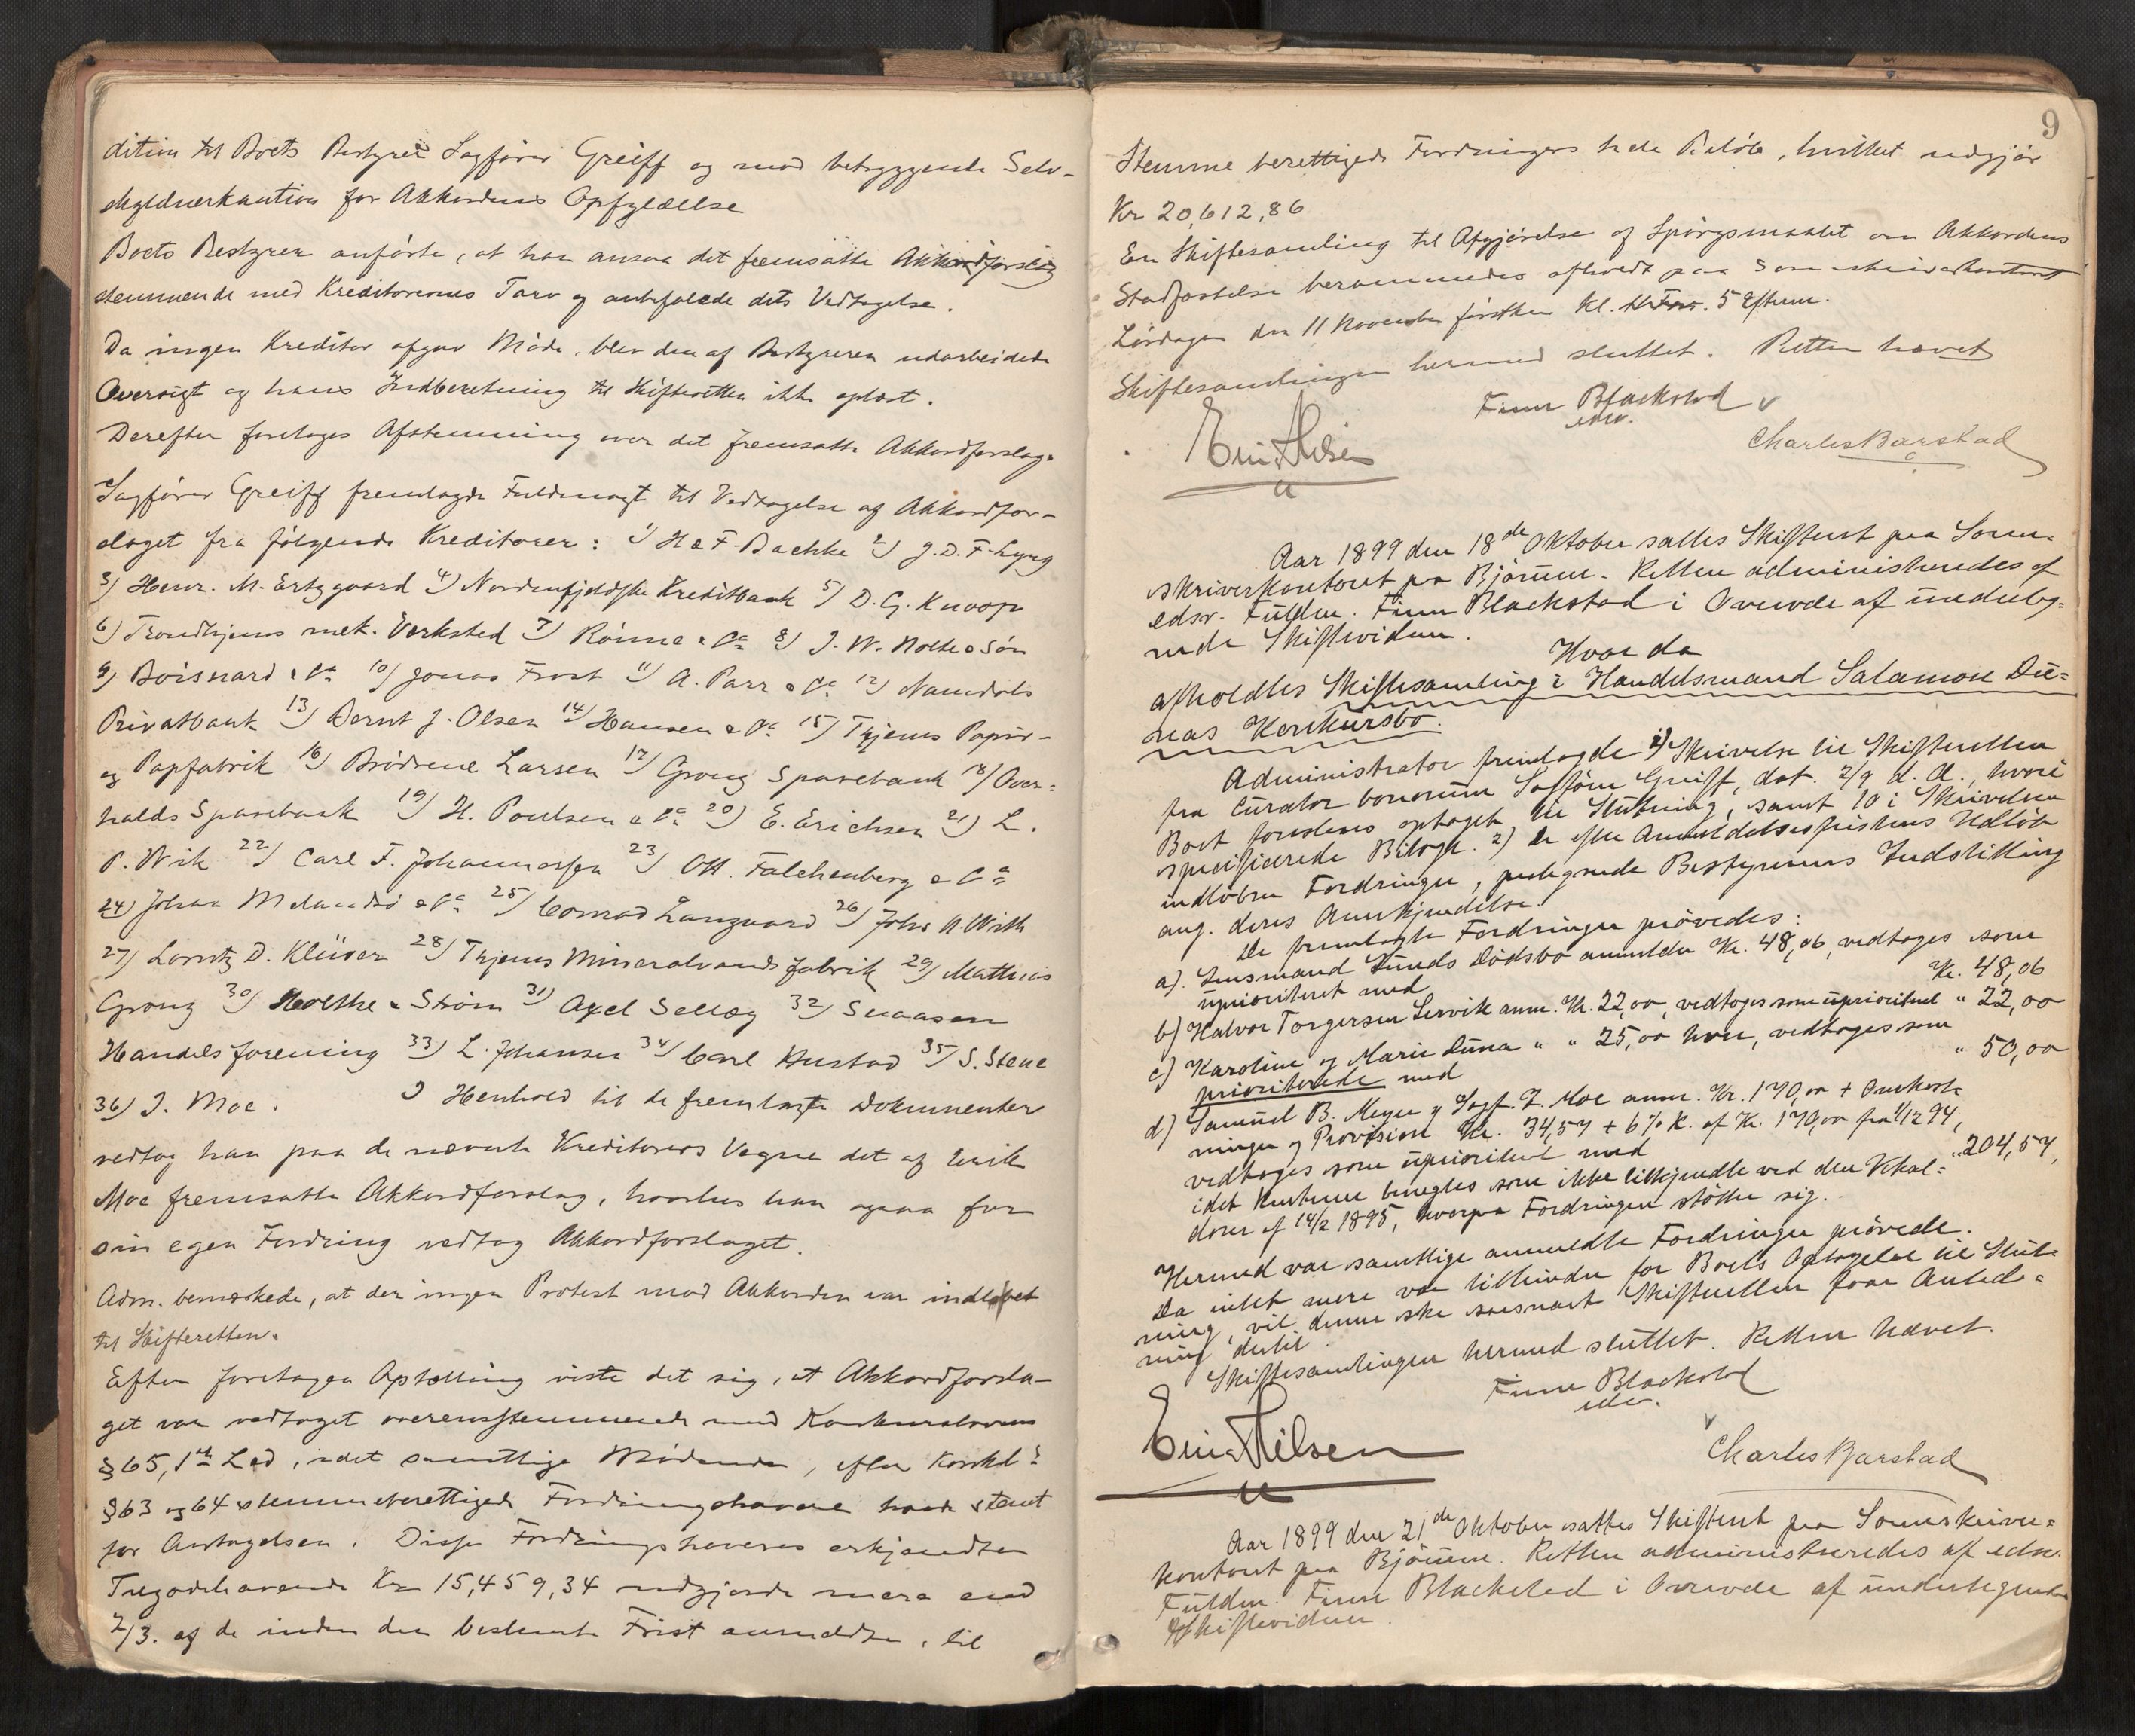 dition til Boets Bestyrer Sagfører Greiff og mod betryggende Selv-
skyldnerkaution for Akkordens Opfyldelse
Boets Bestyrer anførte, at han ansaa det fremsatte Akkordforslag
stemmende med Kreditorernes Tarv og anbefalede dets Vedtagelse.
Da ingen Kreditor afgav Møde, blev den af Bestyreren udarbeidede
Oversigt og hans Indberetning til Skifteretten ikke oplæst.
Derefter foretoges Afstemning over det fremsatte Akkordforslag.
Sagfører Greiff fremlagde Fuldmagt til Vedtagelse af Akkordfor-
slaget fra følgende Kreditorer: 1) H & F. Bachke 2) J. D. F. Lyng
3) Henr. M. Ertzgaard 4) Nordenfjeldske Kreditbank 5) D. G. Knoop
6) Trondhjems mek. Værksted 7) Rönne & Co 8) J. W. Nolte & Søn
9) Boisnard & Co 10) Jonas Frost 11) A. Parr & Co 12) Namdals
Privatbank 13) Bernt J. Olsen 14) Hansen & Co 15) Thjems Papir-
og Papfabrik 16) Brødrene Larsen 17) Grong Sparebank 18) Over-
halds Sparebank 19) H. Poulsen & Co 20) E. Erichsen 21) L.
P. Wik 22) Carl F. Johannessen 23) Ott. Falchenberg & Co
24) Johan Melandsø & Co 25) Conrad Langaard 26) Johs N. With
27) Lorntz D. Klüwer 28) Thjems Mineralvandsfabrik 29) Mathias
Grong 30) Holthe & Strøm 31) Axel Sellæg 32) Snaasen
Handelsforening 33) L. Johansen 34) Carl Hustad 35) S. Stene
36) I. Moe. I Henhold til de fremlagte Dokumenter
vedtog han paa de nævnte Kreditorers Vegne det af Erik
Moe fremsatte Akkordforslag, hvorhos han ogsaa for
sin egen Fordring vedtog Akkordforslaget.
Adm. bemærkede, at der ingen Protest mod Akkorden var indløbet
til Skifteretten.
Efter foretagen Optælling viste det sig, at Akkordforsla-
get var vedtaget overensstemmende med Konkurslovens
§ 65, 1ste Led, idet samtlige Mødende, efter Konkl.s
§ 63 og 64 stemmeberettigede Fordringshavere havde stemt
for Antagelsen. Disse Fordringshaveres erkjendte
Tilgodehavende Kr 15,459,34 udgjorde mere end
2/3. af de inden den bestemte Frist anmeldte, til
9
Stemme berettigede Fordringers hele Beløb, hvilket udgjør
Kr 20,612,86
En Skiftesamling til Afgjørelse af Spørgsmaalet om Akkordens
Stadfæstelse berammedes afholdt paa Sorenskriverkontoret
Lørdagen den 11 November førstkm Kl. 5 Efterm.
Skiftesamlingen hermed sluttet. Retten hævet
Finn Blackstad
edsv.
Charles Barstad
Aar 1899 den 18de Oktober sattes Skifteret paa Soren-
skriverkontoret paa Bjørum. Retten administreredes af
edsv. Fuldm. Finn Blackstad i Overvær af underteg-
nede Skiftevidner.
Hvor da
afholdtes Skiftesamling i Handelsmand Salamon Du-
nas Konkursbo.
Administrator fremlagde 1) Skrivelse til Skifteretten
fra curator bonorum Sagfører Greiff, dat. 2/9 d. A., hvori
Boet foreslaaes optaget til Slutning, samt 10 i Skrivelsen
specificerede Bilage. 2) De efter Anmeldelsesfristens Udløb
indløbne Fordringer, paategnede Bestyrerens Indstilling
ang. deres Anerkjendelse.
De fremlagte Fordringer prøvedes:
a). Lensmand Lunds Dødsbo anmeldte Kr. 48,06, vedtoges som
uprioriteret med Kr. 48,06
b) Halvor Torgersen Lervik anm. Kr. 22,00, vedtoges som uprioriteret " 22,00
c) Karoline og Marie Duna " " 25,00 hver, vedtoges som
prioriterede med " 50,00
d) Samuel B. Meyer v Sagf. I. Moe anm. Kr. 170,00 + Omkost-
ninger og Provision Kr. 34,57 + 6% R. af Kr. 170,00 fra 1/12 94,
vedtoges som uprioriteret med " 204,57,
idet Renterne benegtes som ikke tilkjendte ved den Vexel-
dom af 14/2 1895, hvorpaa Fordringen støtter sig.
Hermed var samtlige anmeldte Fordringer prøvede.
Da intet mere var tilhinder for Boets Optagelse til Slut-
ning, vil denne ske saasnart Skifteretten faar Anled-
ning dertil.
Skiftesamlingen hermed sluttet. Retten hævet.
Finn Blackstad
edsv.
Charles Barstad
Aar 1899 den 21de Oktober sattes Skifteret paa Sorenskriver-
kontoret paa Bjørum. Retten administreredes af edsv.
Fuldm. Finn Blackstad i Overvær af undertegnede
Skiftevidner.